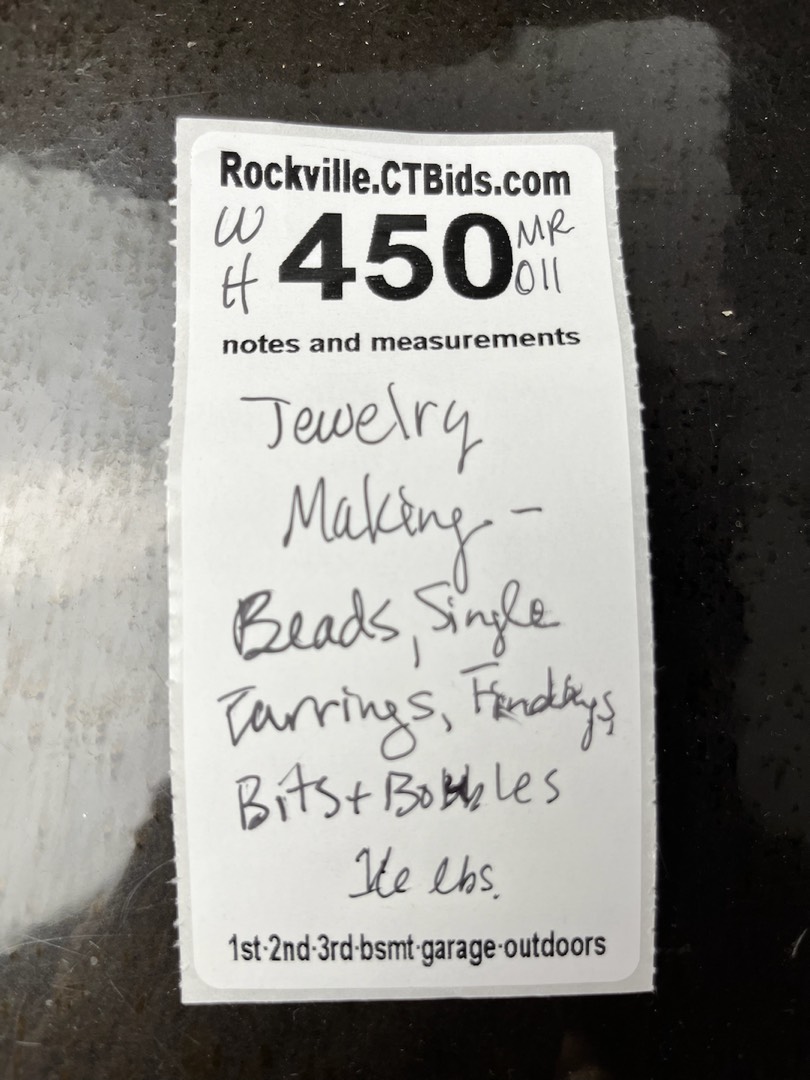 Rockville.CTBids.com
W H 450 MR 011
notes and measurements
Jewelry
Making -
Beads, Single
Earrings, Findings,
Bits + Bobbles
lbs.
1st-2nd-3rd-bsmt-garage-outdoors